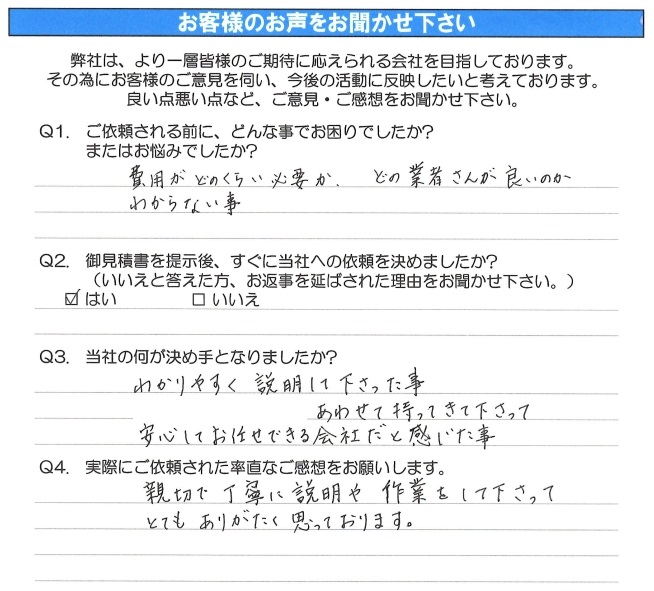 お客様のお声をお聞かせ下さい
弊社は、より一層皆様のご期待に応えられる会社を目指しております。
その為にお客様のご意見を伺い、今後の活動に反映したいと考えております。
良い点悪い点など、ご意見・ご感想をお聞かせ下さい。
Q1. ご依頼される前に、どんな事でお困りでしたか?
またはお悩みでしたか?
費用がどのくらい必要か. どの業者さんが良いのか
わからない事
Q2. 御見積書を提示後、すぐに当社への依頼を決めましたか?
(いいえと答えた方、お返事を延ばされた理由をお聞かせ下さい。)
☑ はい □ いいえ
Q3. 当社の何が決め手となりましたか?
わかりやすく説明して下さった事
あわせて持ってきて下さって
安心してお任せできる会社だと感じた事
Q4. 実際にご依頼された率直なご感想をお願いします。
親切で丁寧に説明や作業をして下さって
とてもありがたく思っております。